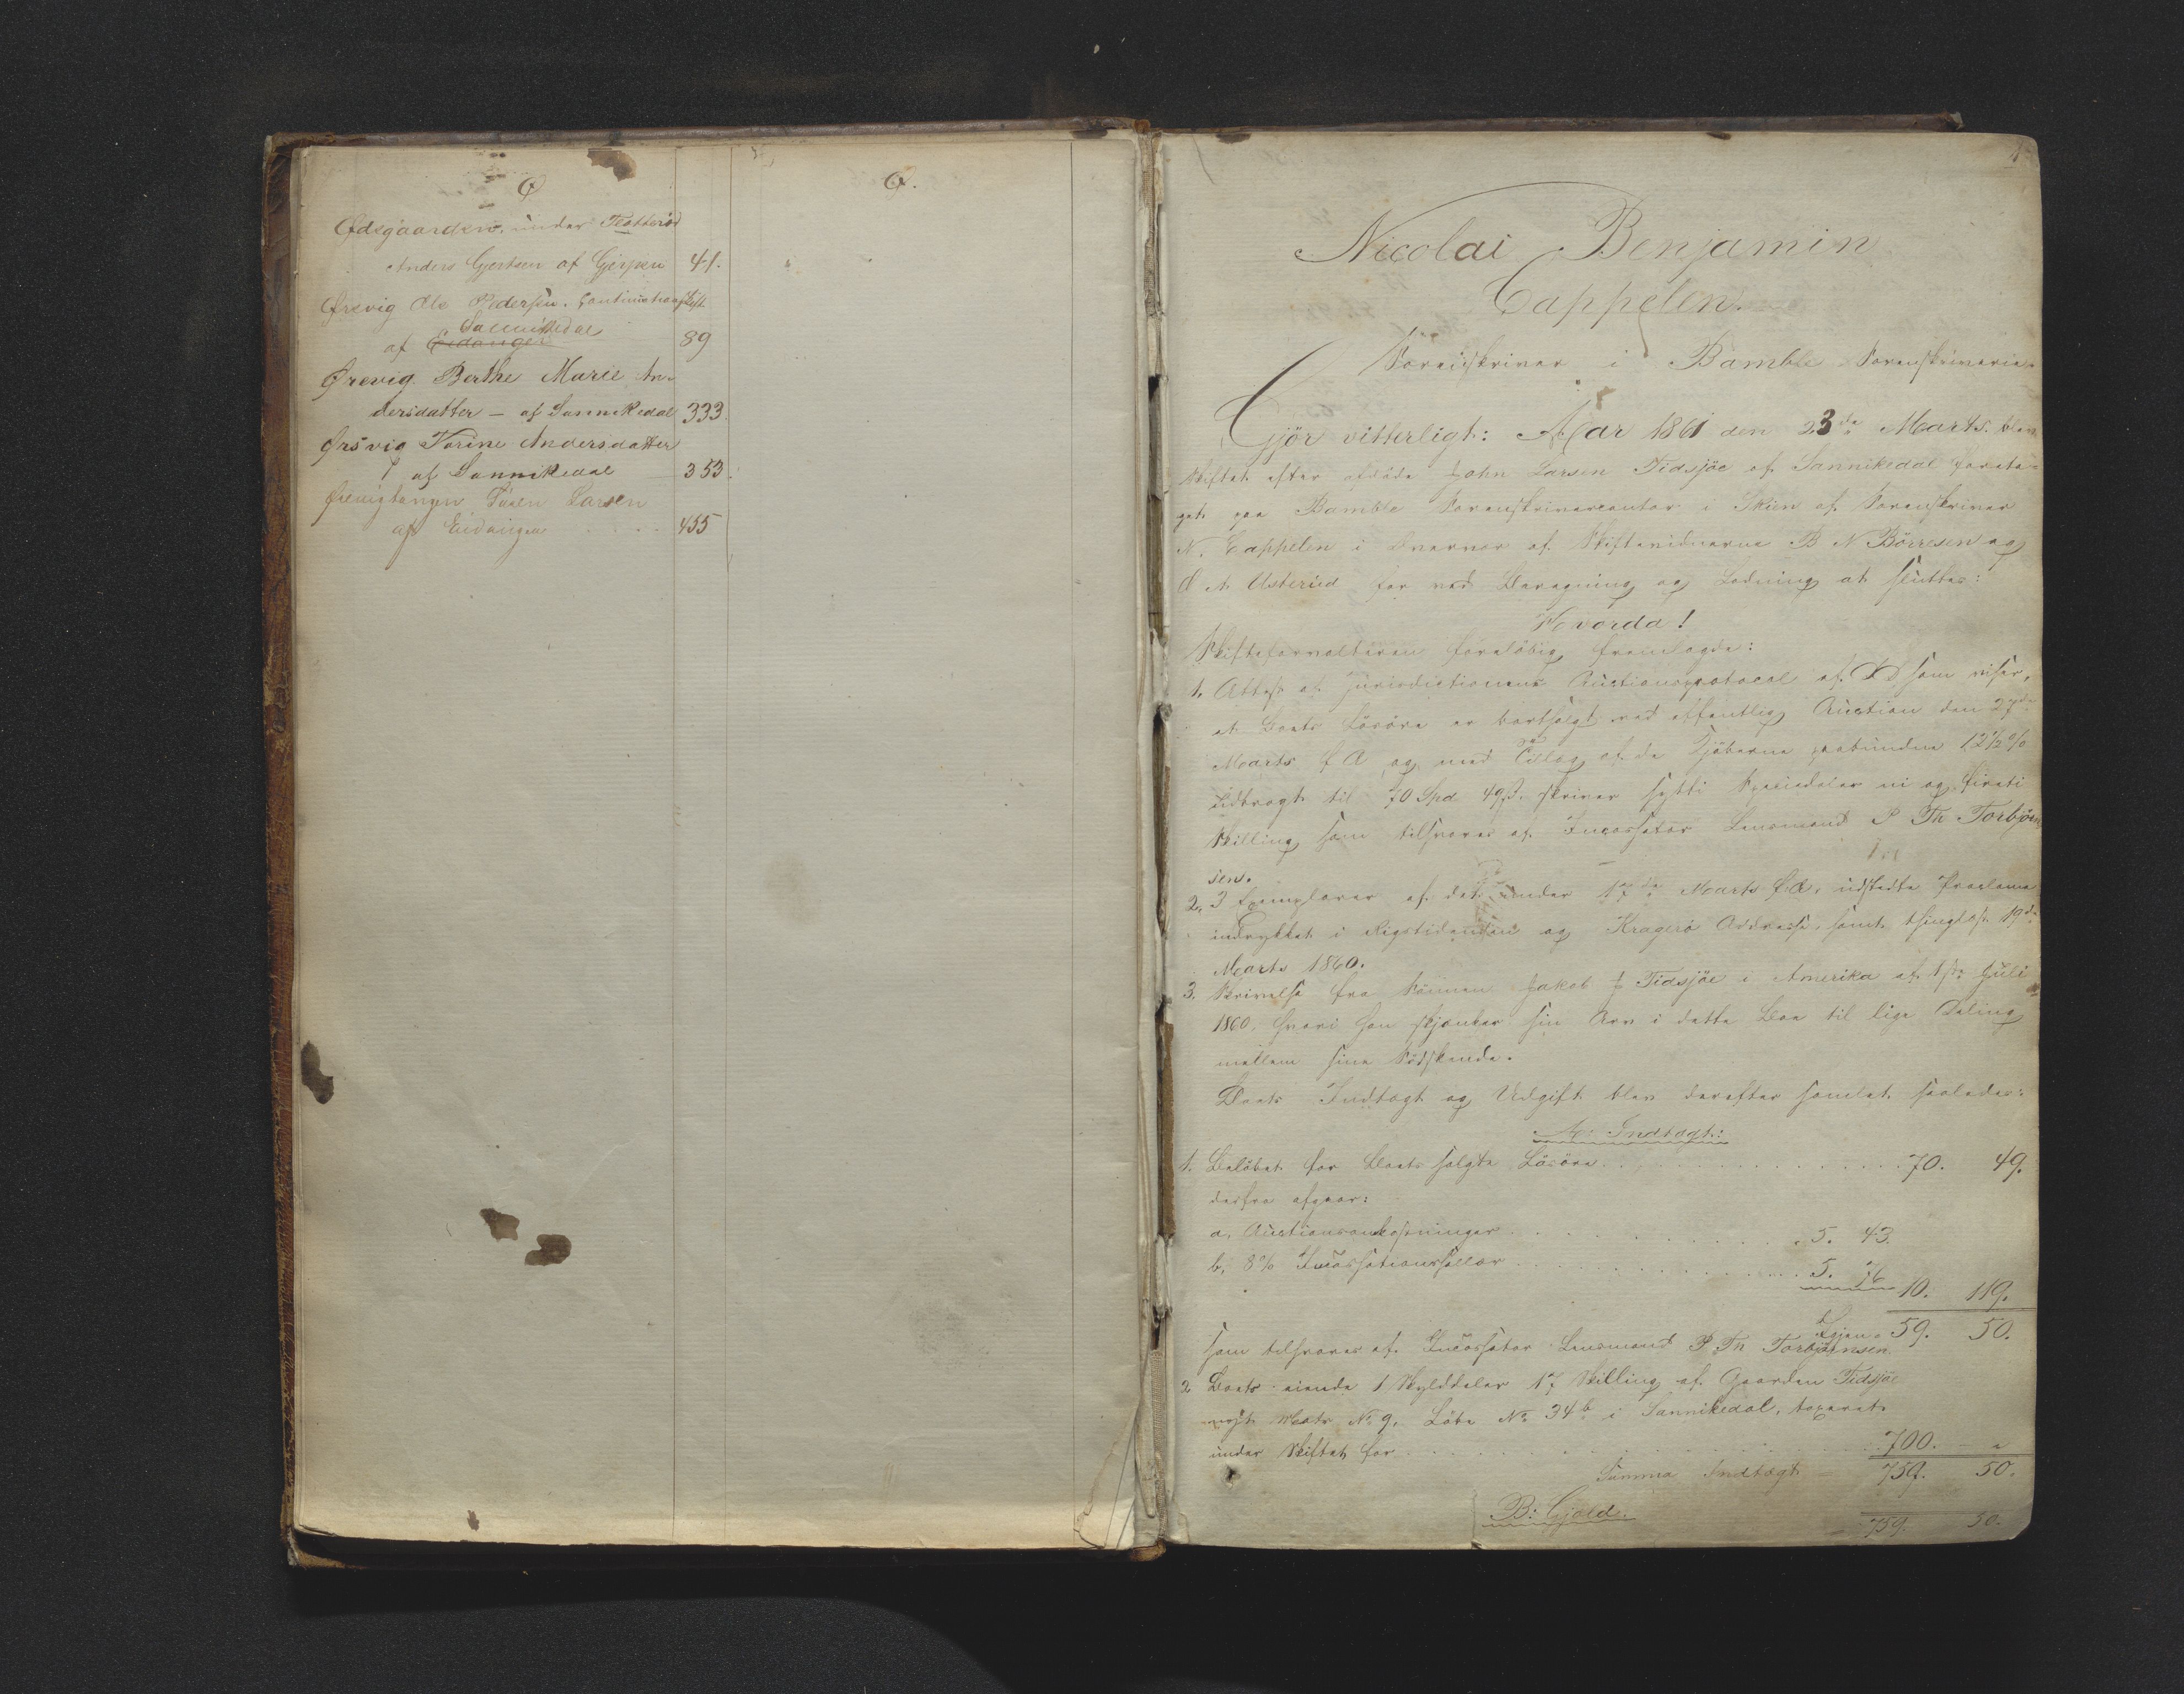 Ø
Ødegaarden, under Flatterød
Anders Gjertsen af Gjerpen 41.
Ørevig Ole Pedersen. Continuationsskift
Sannikedal
af Eidanger 89
Ørevig Berthe Marie An-
dersdatter - af Sannikedal 333.
Ørsvig Karine Andersdatter
af Sannikedal 353.
Ørevigtangen Søren Larsen
af Eidanger 455
Ø.
1
Nicolai Benjamin
Cappelen.
Sorenskriver i Bamble Sorenskriverie.
Gjör vitterligt: Aar 1861 den 23de Marts blev
Skiftet efter afdöde John Larsen Tidsjöe af Sannikedal foreta-
get paa Bamble Sorenskrivercontor i Skien af Sorenskriver
N. Cappelen i Overvær af Skiftevidnerne B N Börresen og
O A Usterud for ved Beregning og Lodning at sluttes:
Hvorda!
Skifteforvalteren foreløbig fremlagde:
1. Attest af Jurisdictionens Auctionsprotocol af DD som viser,
at Boets Løsøre er bortsolgt ved offentlig Auction den 27de
Marts f A og med Tillæg af de Kjøberne paabudne 12 1/2 %
udbragt til 70 Spd 49 ß. skriver sytti Speciedaler ni og fireti
Skilling som tilsvares af Incassator Lensmand P Th Torbjörn
sen.
2. 3 Exemplarer af det under 17de Marts f.A. udstedte Proclama
indrykket i Rigstidenden og Kragerö Addresse, samt thinglæst 19de
Marts 1860.
3. Skrivelse fra Sönnen Jakob J Tidsjöe i Amerika af 1ste Juli
1860, hvori han skjænker sin Arv i dette Boe til lige Deling
mellem sine Södskende.
Boets Indtægt og Udgift blev derefter samlet saaledes:
A: Indtægt:
1. Belöbet for Boets solgte Lösöre . . . 70. 49.
derfra afgaar:
a, Auctionsomkostninger . . . 5. 43.
b, 8 % Incassationssallær . . . 5. 76
10. 119.
Igjen 59. 50.
som tilsvares af Incassator Lensmand P. Th Torbjörnsen
2 Boets eiende 1 Skylddaler 17 Skilling af Gaarden Tidsjöe
Matr No 9. Löbe No 34b i Sannikedal, taxeret
under Skiftet for . . . 700. "
Summa Indtægt 759. 50.
B: Gjæld.
759. 50.